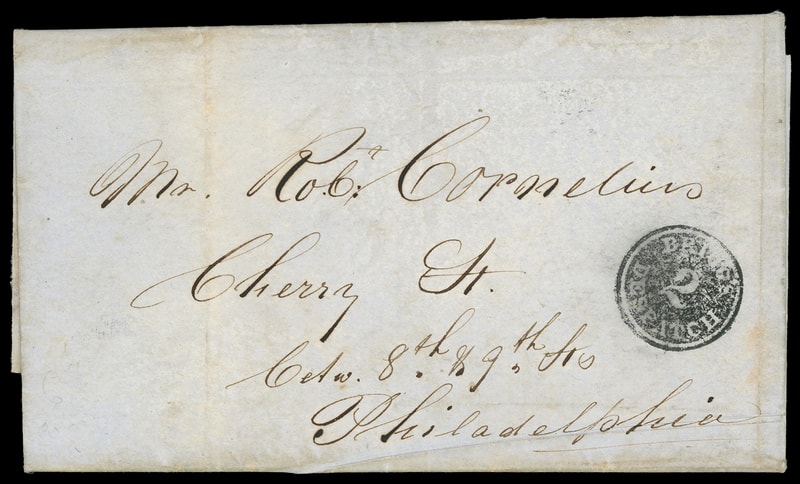 Mr. Robt. Cornelius
Cherry St.
betw. 8th & 9th Sts
Philadelphia
BRIGGS
DESPATCH
2